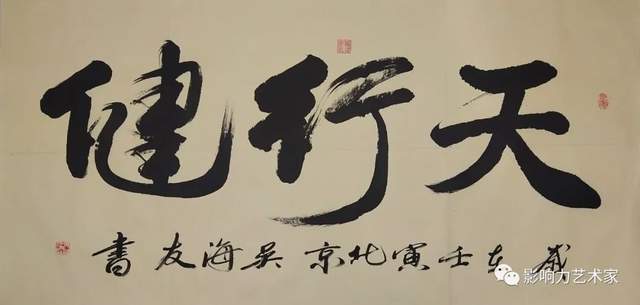 天行健
岁在壬寅北京吴海友书
影响力艺术家